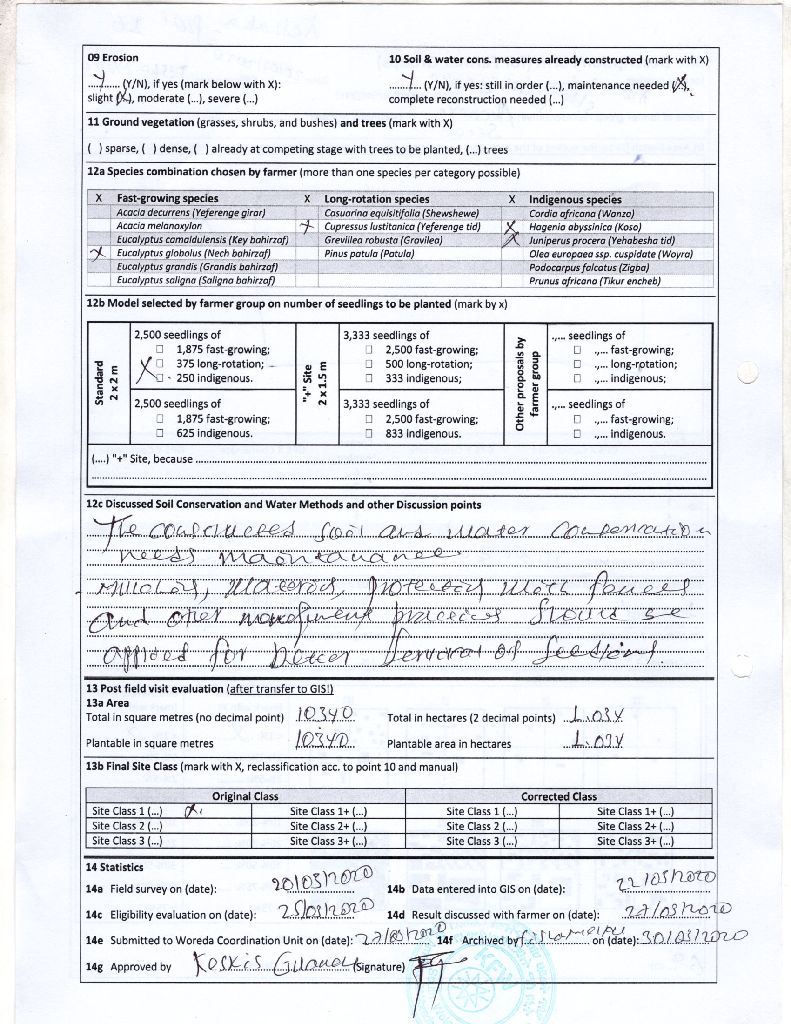 09 Erosion
Y (Y/N), if yes (mark below with X):
slight (X), moderate (...), severe (...)
10 Soil & water cons. measures already constructed (mark with X)
Y (Y/N), if yes: still in order (...), maintenance needed (X),
complete reconstruction needed (...)
11 Ground vegetation (grasses, shrubs, and bushes) and trees (mark with X)
( ) sparse, ( ) dense, ( ) already at competing stage with trees to be planted, (...) trees
12a Species combination chosen by farmer (more than one species per category possible)
X Fast-growing species X Long-rotation species X Indigenous species
Acacia decurrens (Yeferenge girar) Casuarina equisitifolia (Shewshewe) Cordia africana (Wanza)
Acacia melanoxylon X Cupressus lustitanica (Yeferenge tid) X Hagenia abyssinica (Koso)
Eucalyptus camaldulensis (Key bahirzaf) Grevillea robusta (Gravilea) X Juniperus procera (Yehabesha tid)
X Eucalyptus globolus (Nech bahirzaf) Pinus patula (Patula) Olea europaea ssp. cuspidate (Woyra)
Eucalyptus grandis (Grandis bahirzaf) Podocarpus falcatus (Zigba)
Eucalyptus saligna (Saligna bahirzaf) Prunus africana (Tikur encheb)
12b Model selected by farmer group on number of seedlings to be planted (mark by x)
Standard
2 x 2 m
2,500 seedlings of
☐ 1,875 fast-growing;
X ☐ 375 long-rotation;
☐ 250 indigenous.
2,500 seedlings of
☐ 1,875 fast-growing;
☐ 625 indigenous.
"+" Site
2 x 1.5 m
3,333 seedlings of
☐ 2,500 fast-growing;
☐ 500 long-rotation;
☐ 333 indigenous;
3,333 seedlings of
☐ 2,500 fast-growing;
☐ 833 indigenous.
Other proposals by
farmer group
.,... seedlings of
☐ .,... fast-growing;
☐ .,... long-rotation;
☐ .,... indigenous;
.,... seedlings of
☐ .,... fast-growing;
☐ .,... indigenous.
(....) "+" Site, because
12c Discussed Soil Conservation and Water Methods and other Discussion points
The soil and water
needs maontanance
and other practices should be
applied for of
13 Post field visit evaluation (after transfer to GIS!)
13a Area
Total in square metres (no decimal point) 10340 Total in hectares (2 decimal points) 1.034
Plantable in square metres 10340 Plantable area in hectares 1.034
13b Final Site Class (mark with X, reclassification acc. to point 10 and manual)
Original Class Corrected Class
Site Class 1 (...) X Site Class 1+ (...) Site Class 1 (...) Site Class 1+ (...)
Site Class 2 (...) Site Class 2+ (...) Site Class 2 (...) Site Class 2+ (...)
Site Class 3 (...) Site Class 3+ (...) Site Class 3 (...) Site Class 3+ (...)
14 Statistics
14a Field survey on (date): 20/03/2020 14b Data entered into GIS on (date): 22/03/2020
14c Eligibility evaluation on (date): 25/03/2020 14d Result discussed with farmer on (date): 27/03/2020
14e Submitted to Woreda Coordination Unit on (date): 27/03/2020 14f Archived by on (date): 30/03/2020
14g Approved by (Signature)
KFW